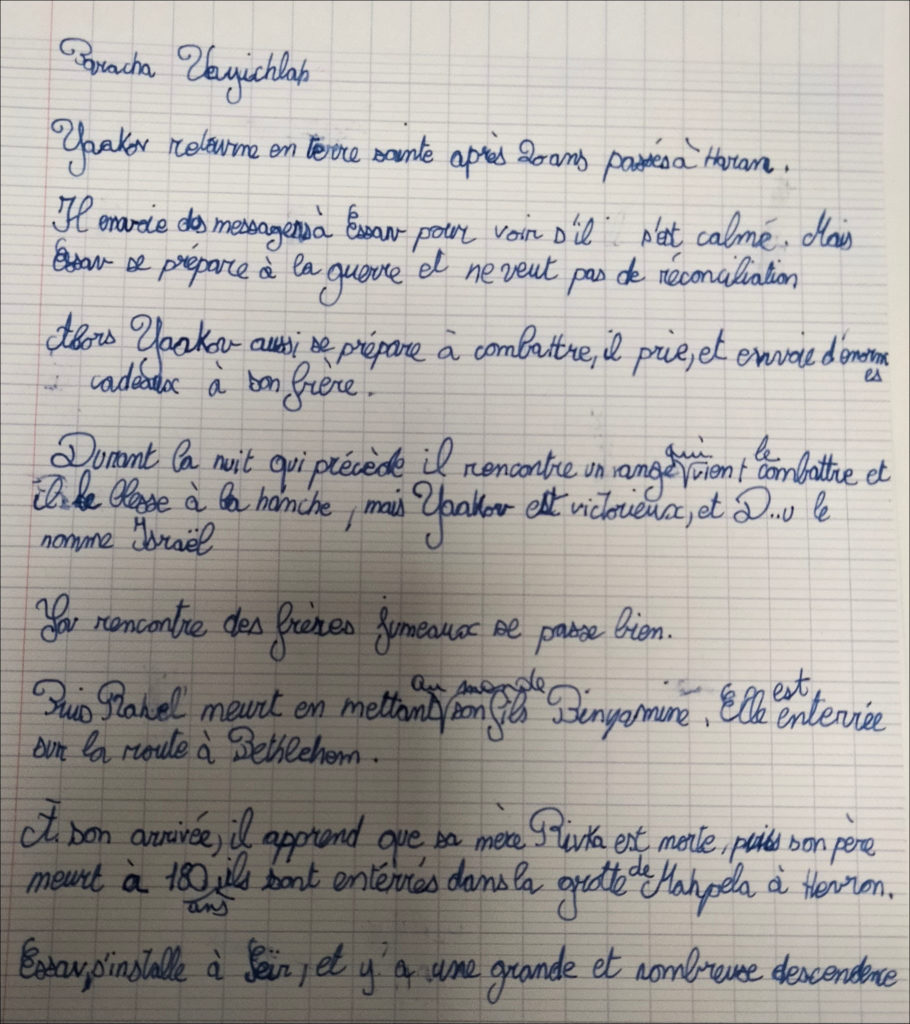 Paracha Vayichlah
Yaakov retourne en terre sainte après 20 ans passés à Haran.
Il envoie des messagers à Essav pour voir s'il s'est calmé. Mais
Essav se prépare à la guerre et ne veut pas de réconciliation
Alors Yaakov aussi se prépare à combattre, il prie, et envoie d'énormes
cadeaux à son frère.
Durant la nuit qui précède il rencontre un ange qui vient le combattre et
il le blesse à la hanche, mais Yaakov est victorieux, et D..u le
nomme Israël
La rencontre des frères jumeaux se passe bien.
Puis Rahel meurt en mettant au monde son fils Binyamine. Elle est enterrée
sur la route à Bethlehem.
A son arrivée, il apprend que sa mère Rivka est morte, puis son père
meurt à 180 ans, ils sont entérrés dans la grotte de Mahpela à Hevron.
Essav, s'installe à Seïr, et y'a une grande et nombreuse descendence